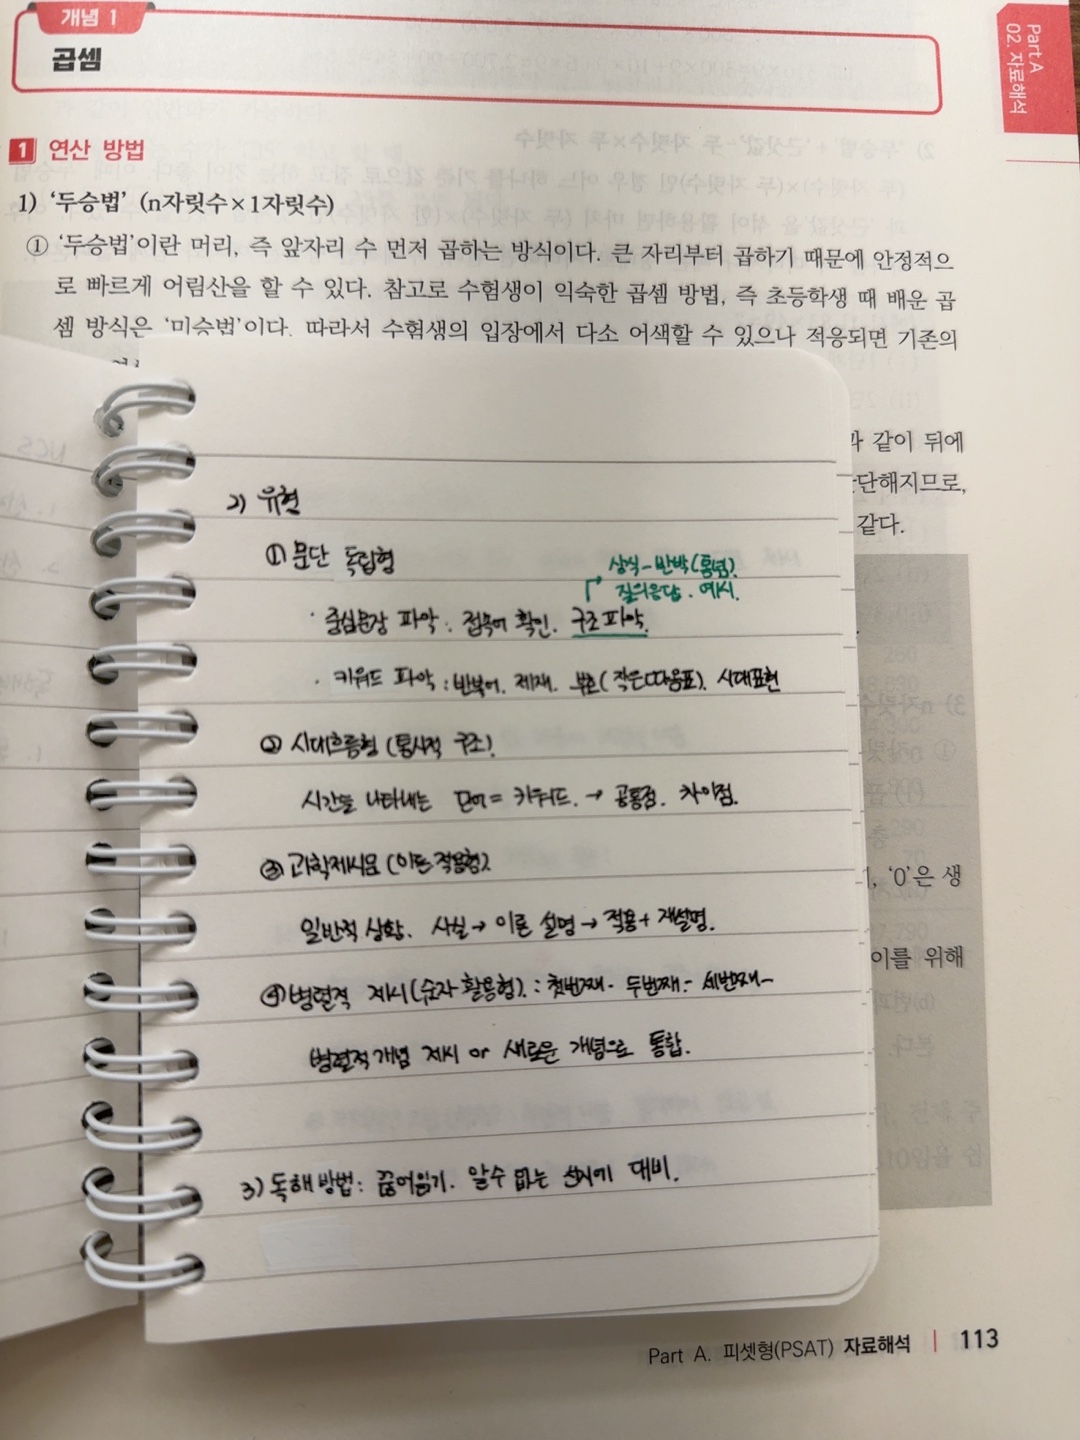 개념 1
곱셈
Part A
02. 자료해석
1 연산 방법
1) ‘두승법’ (n자릿수×1자릿수)
① ‘두승법’이란 머리, 즉 앞자리 수 먼저 곱하는 방식이다. 큰 자리부터 곱하기 때문에 안정적으
로 빠르게 어림산을 할 수 있다. 참고로 수험생이 익숙한 곱셈 방법, 즉 초등학생 때 배운 곱
셈 방식은 ‘미승법’이다. 따라서 수험생의 입장에서 다소 어색할 수 있으나 적응되면 기존의
같이 뒤에
단해지므로,
같다.
2) 유형
① 문단 독립형
상식-반박(통념).
질의응답. 예시.
· 중심문장 파악 : 접속어 확인. 구조파악.
· 키워드 파악 : 반복어. 제재. 부호(작은따옴표). 시대표현
② 시대흐름형 (통시적 구조).
시간을 나타내는 단어 = 키워드. → 공통점. 차이점.
③ 과학제시문 (이론 적용형)
일반적 상황. 사실 → 이론 설명 → 적용 + 재설명.
④ 병렬적 제시(숫자 활용형). : 첫번째- 두번째- 세번째-
병렬적 개념 제시 or 새로운 개념으로 통합.
3) 독해 방법 : 끊어읽기. 알수 없는 선지에 대비.
‘0’은 생
이를 위해
Part A. 피셋형(PSAT) 자료해석 | 113